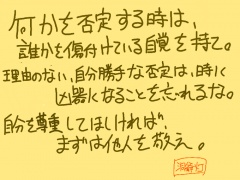 何かを否定する時は、
誰かを傷付けている自覚を持て。
理由のない、自分勝手な否定は、時に
凶器になることを忘れるな。
自分を尊重してほしければ
まずは他人を敬え。